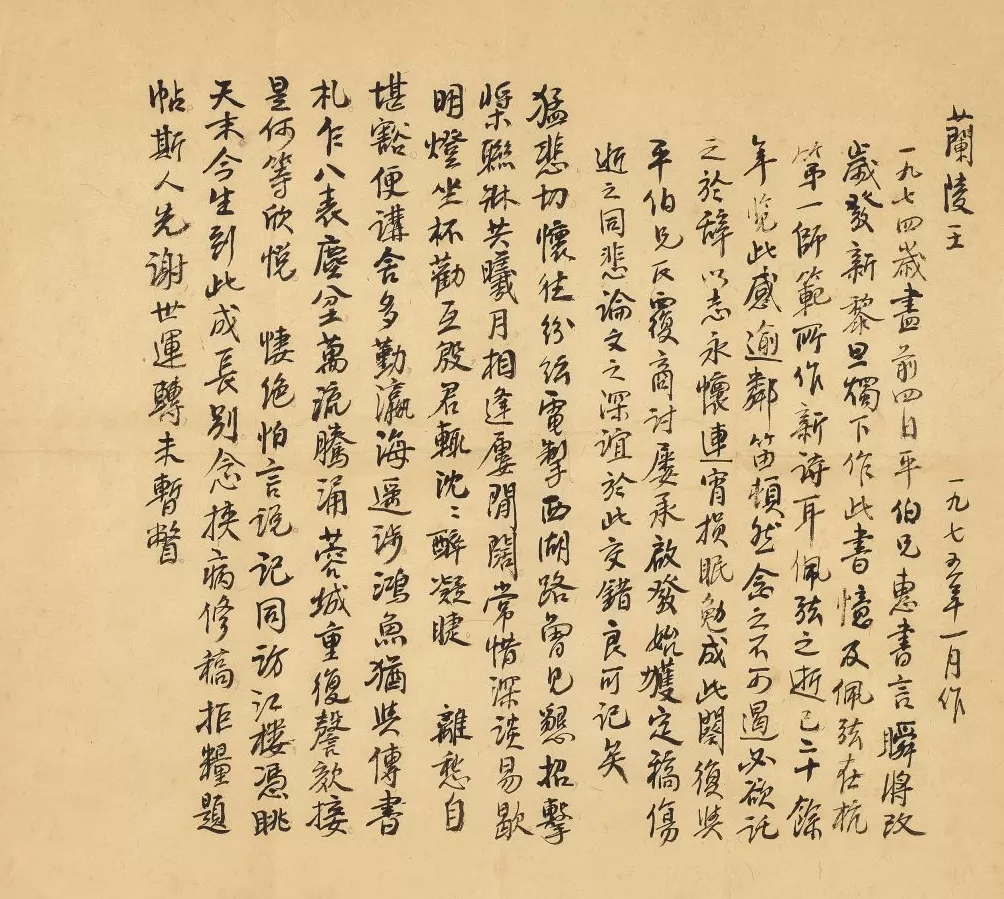 蘭陵王 一九七五年一月作
一九七四歲盡前四日平伯兄惠書言瞬將改
歲發新黎旦燭下作此書憶及佩弦在杭
第一師範所作新詩耳佩弦之逝已二十餘
年覽此感逾鄰笛頓然念之不可遏必欲託
之於辭以志永懷連宵損眠勉成此闋復與
平伯兄反覆商討屢承啟發始獲定稿傷
逝之同悲論文之深誼於此交錯良可記矣
猛悲切懷往紛紜電掣西湖路曾見懇招擊
槳聯牀共曦月相逢屢間闊常惜深談易歇
明燈坐杯勸互殷君輒沈〻醉凝睫 離愁自
堪豁便講舍多勤瀛海遥涉鴻魚猶與傳書
札乍八表塵坌萬流騰涌蓉城重復謦欬接
是何等欣悅 悽絕怕言說記同訪江樓憑眺
天末今生到此成長別念挾病修稿拒糧題
帖斯人先謝世運轉未暫瞥